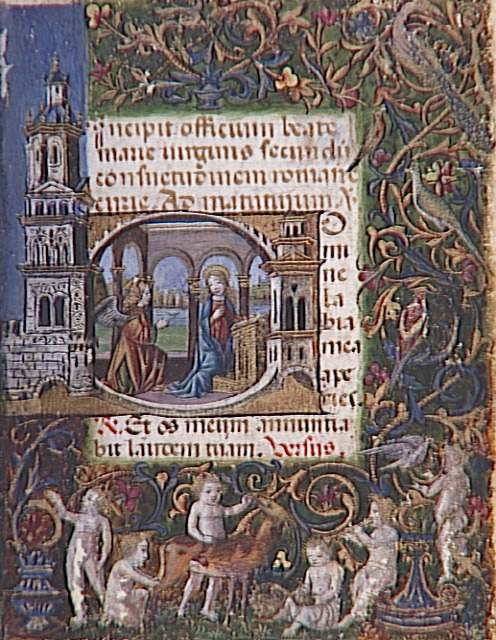 Incipit officium beate
marie virginis secundū
consuetudinem roman
curie. Ad matutinum ꝟ
Do
mi
ne
la
bia
mea
ape
ries.
℟. Et os meum annuntia
bit laudem tuam. Versus.